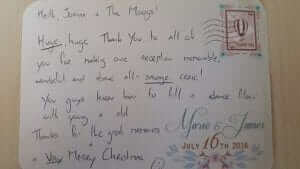 Keith, Joanne & The Moogs!
Huge, huge Thank You to all of
you for making our reception memorable,
wonderful and above all - smooge ceoil!
You guys know how to fill a dance floor
with young & old
Thanks for the great memories
& Very Merry Christmas
Marie & James
JULY 16TH 2016